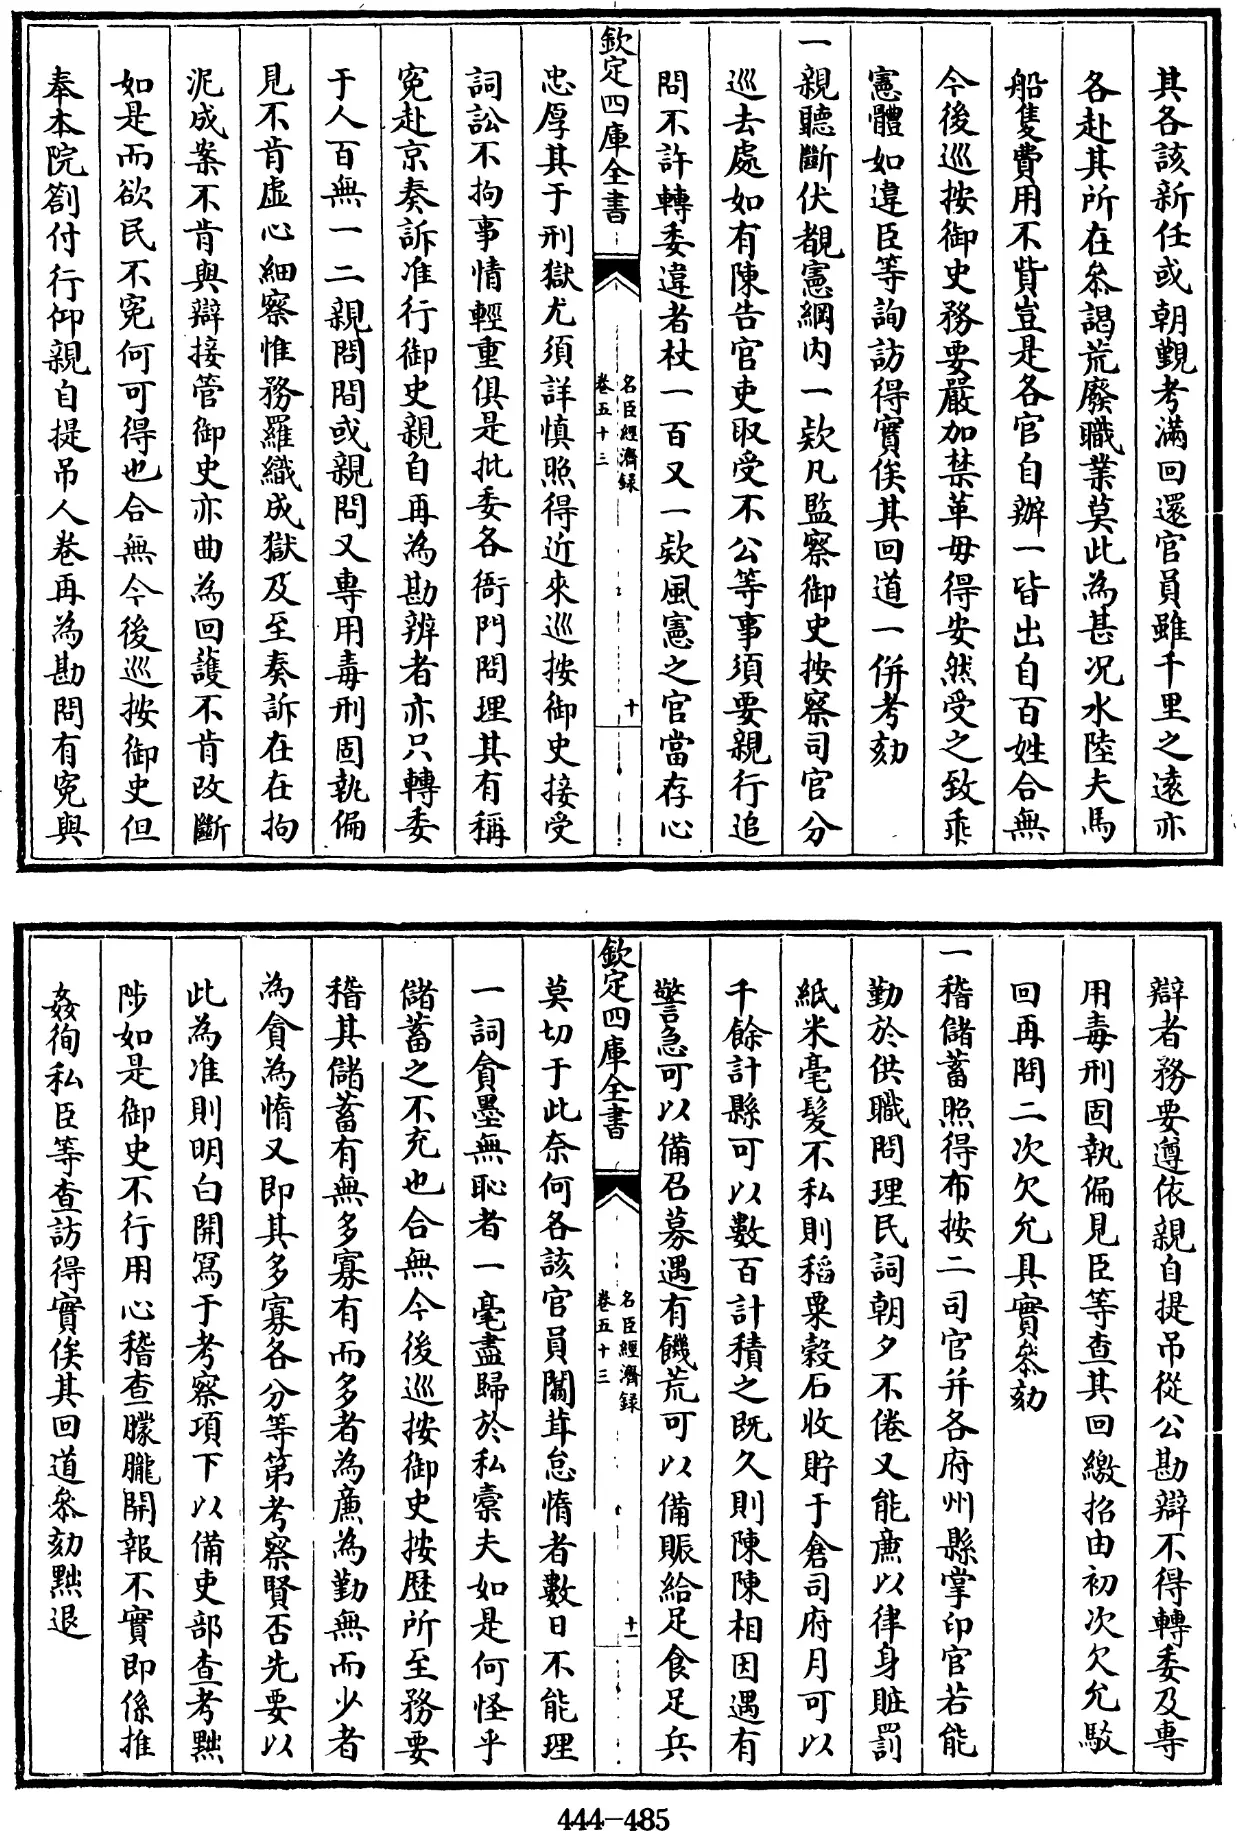 其各該新任或朝覲考滿回還官員雖千里之遠亦
各赴其所在叅謁荒廢職業莫此為甚况水陸夫馬
船隻費用不貲豈是各官自辦一皆出自百姓合無
今後巡按御史務要嚴加禁革毋得安然受之致乖
憲體如違臣等詢訪得實俟其回道一併考劾
一親聽斷伏覩憲綱内一欵凡監察御史按察司官分
巡去處如有陳告官吏取受不公等事須要親行追
問不許轉委違者杖一百又一欵風憲之官當存心
欽定四庫全書
名臣經濟録
卷五十三
十
忠厚其于刑獄尤須詳慎照得近來巡按御史接受
詞訟不拘事情輕重俱是批委各衙門問理其有稱
寃赴京奏訴准行御史親自再為勘辨者亦只轉委
于人百無一二親問間或親問又專用毒刑固執偏
見不肯虚心細察惟務羅織成獄及至奏訴在在拘
泥成案不肯與辯接管御史亦曲為回護不肯改斷
如是而欲民不寃何可得也合無今後巡按御史但
奉本院劄付行仰親自提吊人卷再為勘問有寃與
辯者務要遵依親自提吊從公勘辯不得轉委及專
用毒刑固執偏見臣等查其回繳招由初次欠允駁
回再問二次欠允具實叅劾
一稽儲蓄照得布按二司官并各府州縣掌印官若能
勤於供職問理民詞朝夕不倦又能亷以律身贓罰
紙米毫髪不私則稻粟穀石收貯于倉司府月可以
千餘計縣可以數百計積之既久則陳陳相因遇有
警急可以備召募遇有饑荒可以備賑給足食足兵
欽定四庫全書
名臣經濟録
卷五十三
十一
莫切于此奈何各該官員闒茸怠惰者數日不能理
一詞貪墨無恥者一毫盡歸於私橐夫如是何怪乎
儲蓄之不充也合無今後巡按御史按歴所至務要
稽其儲蓄有無多寡有而多者為亷為勤無而少者
為貪為惰又即其多寡各分等第考察賢否先要以
此為准則明白開寫于考察項下以備吏部查考黜
陟如是御史不行用心稽查朦朧開報不實即係推
姦徇私臣等查訪得實俟其回道叅劾黜退
444-485